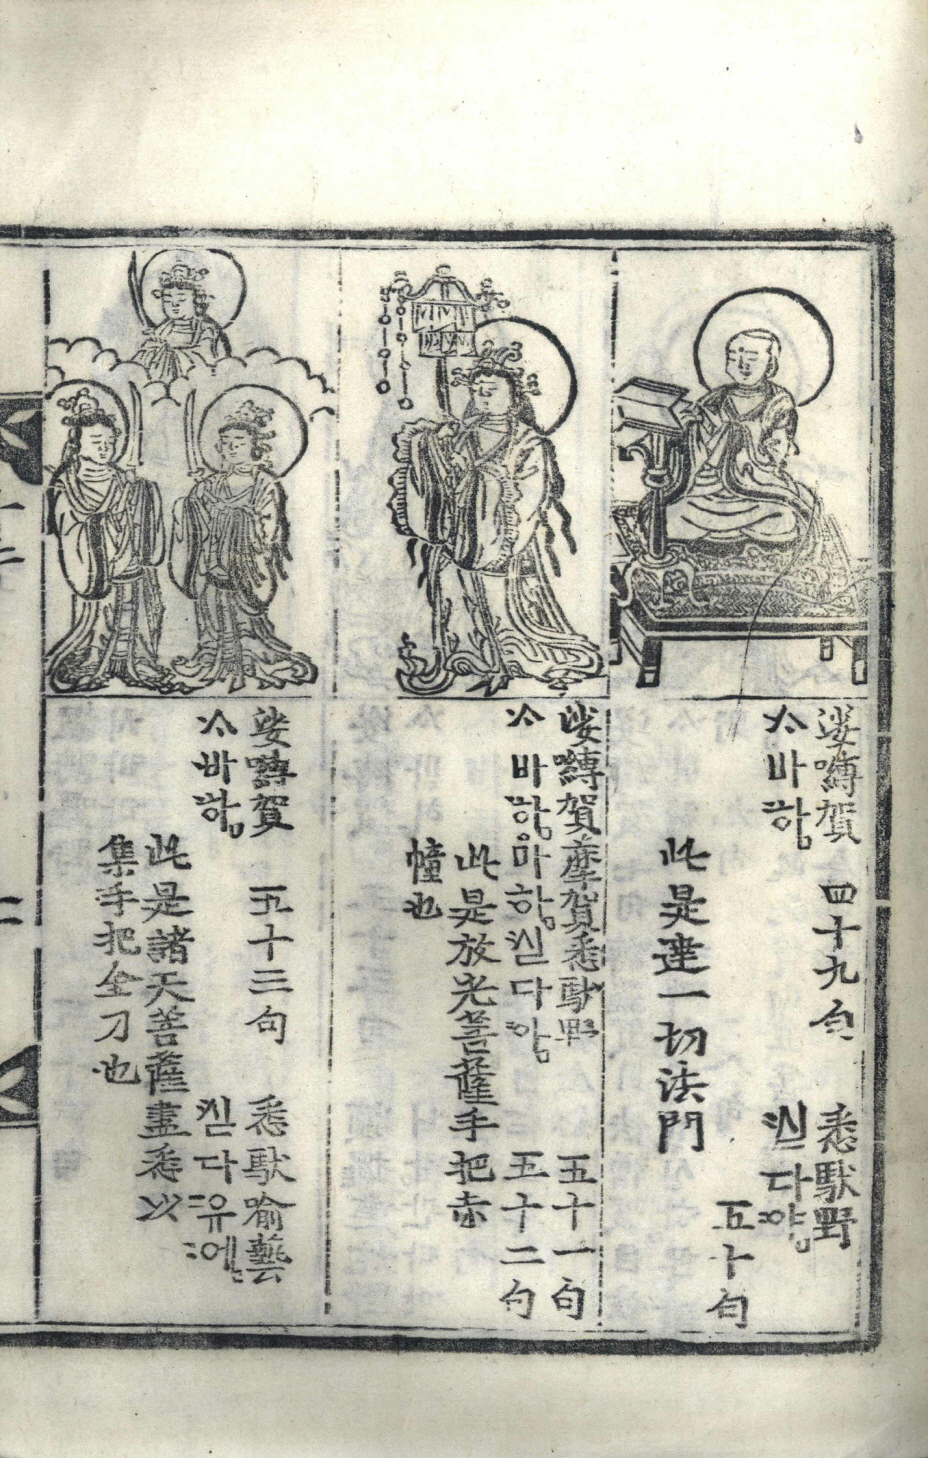 娑嚩賀 四十九句 悉馱野
스바하 싣다야
五十句
此是達一切法門
娑嚩賀摩賀悉馱野 五十一句
스바하마하싣다야 五十二句
此是放光菩薩手把赤
幢也
娑嚩賀 五十三句 悉馱喻藝
스바하 싣다유예
此是諸天菩薩盡悉以
集手把金刀也